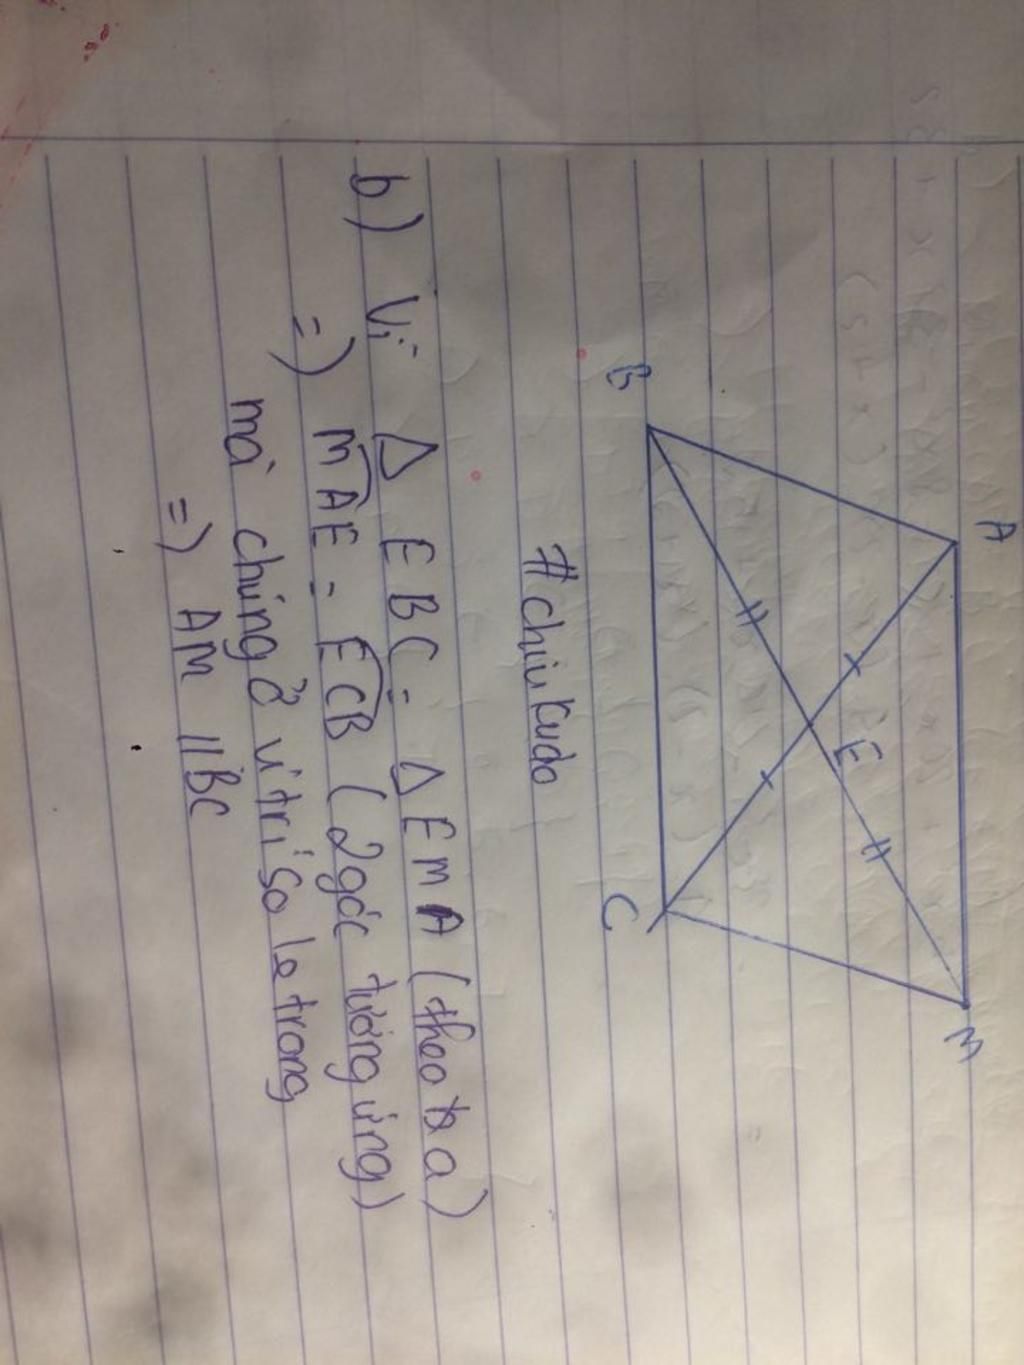 A
M
E
B
C
#chiikudo
b) Vì Δ EBC = Δ EMA (theo a)
=) MAE = ECB (2 góc tương ứng)
mà chúng ở vị trí so le trong
=) AM // BC